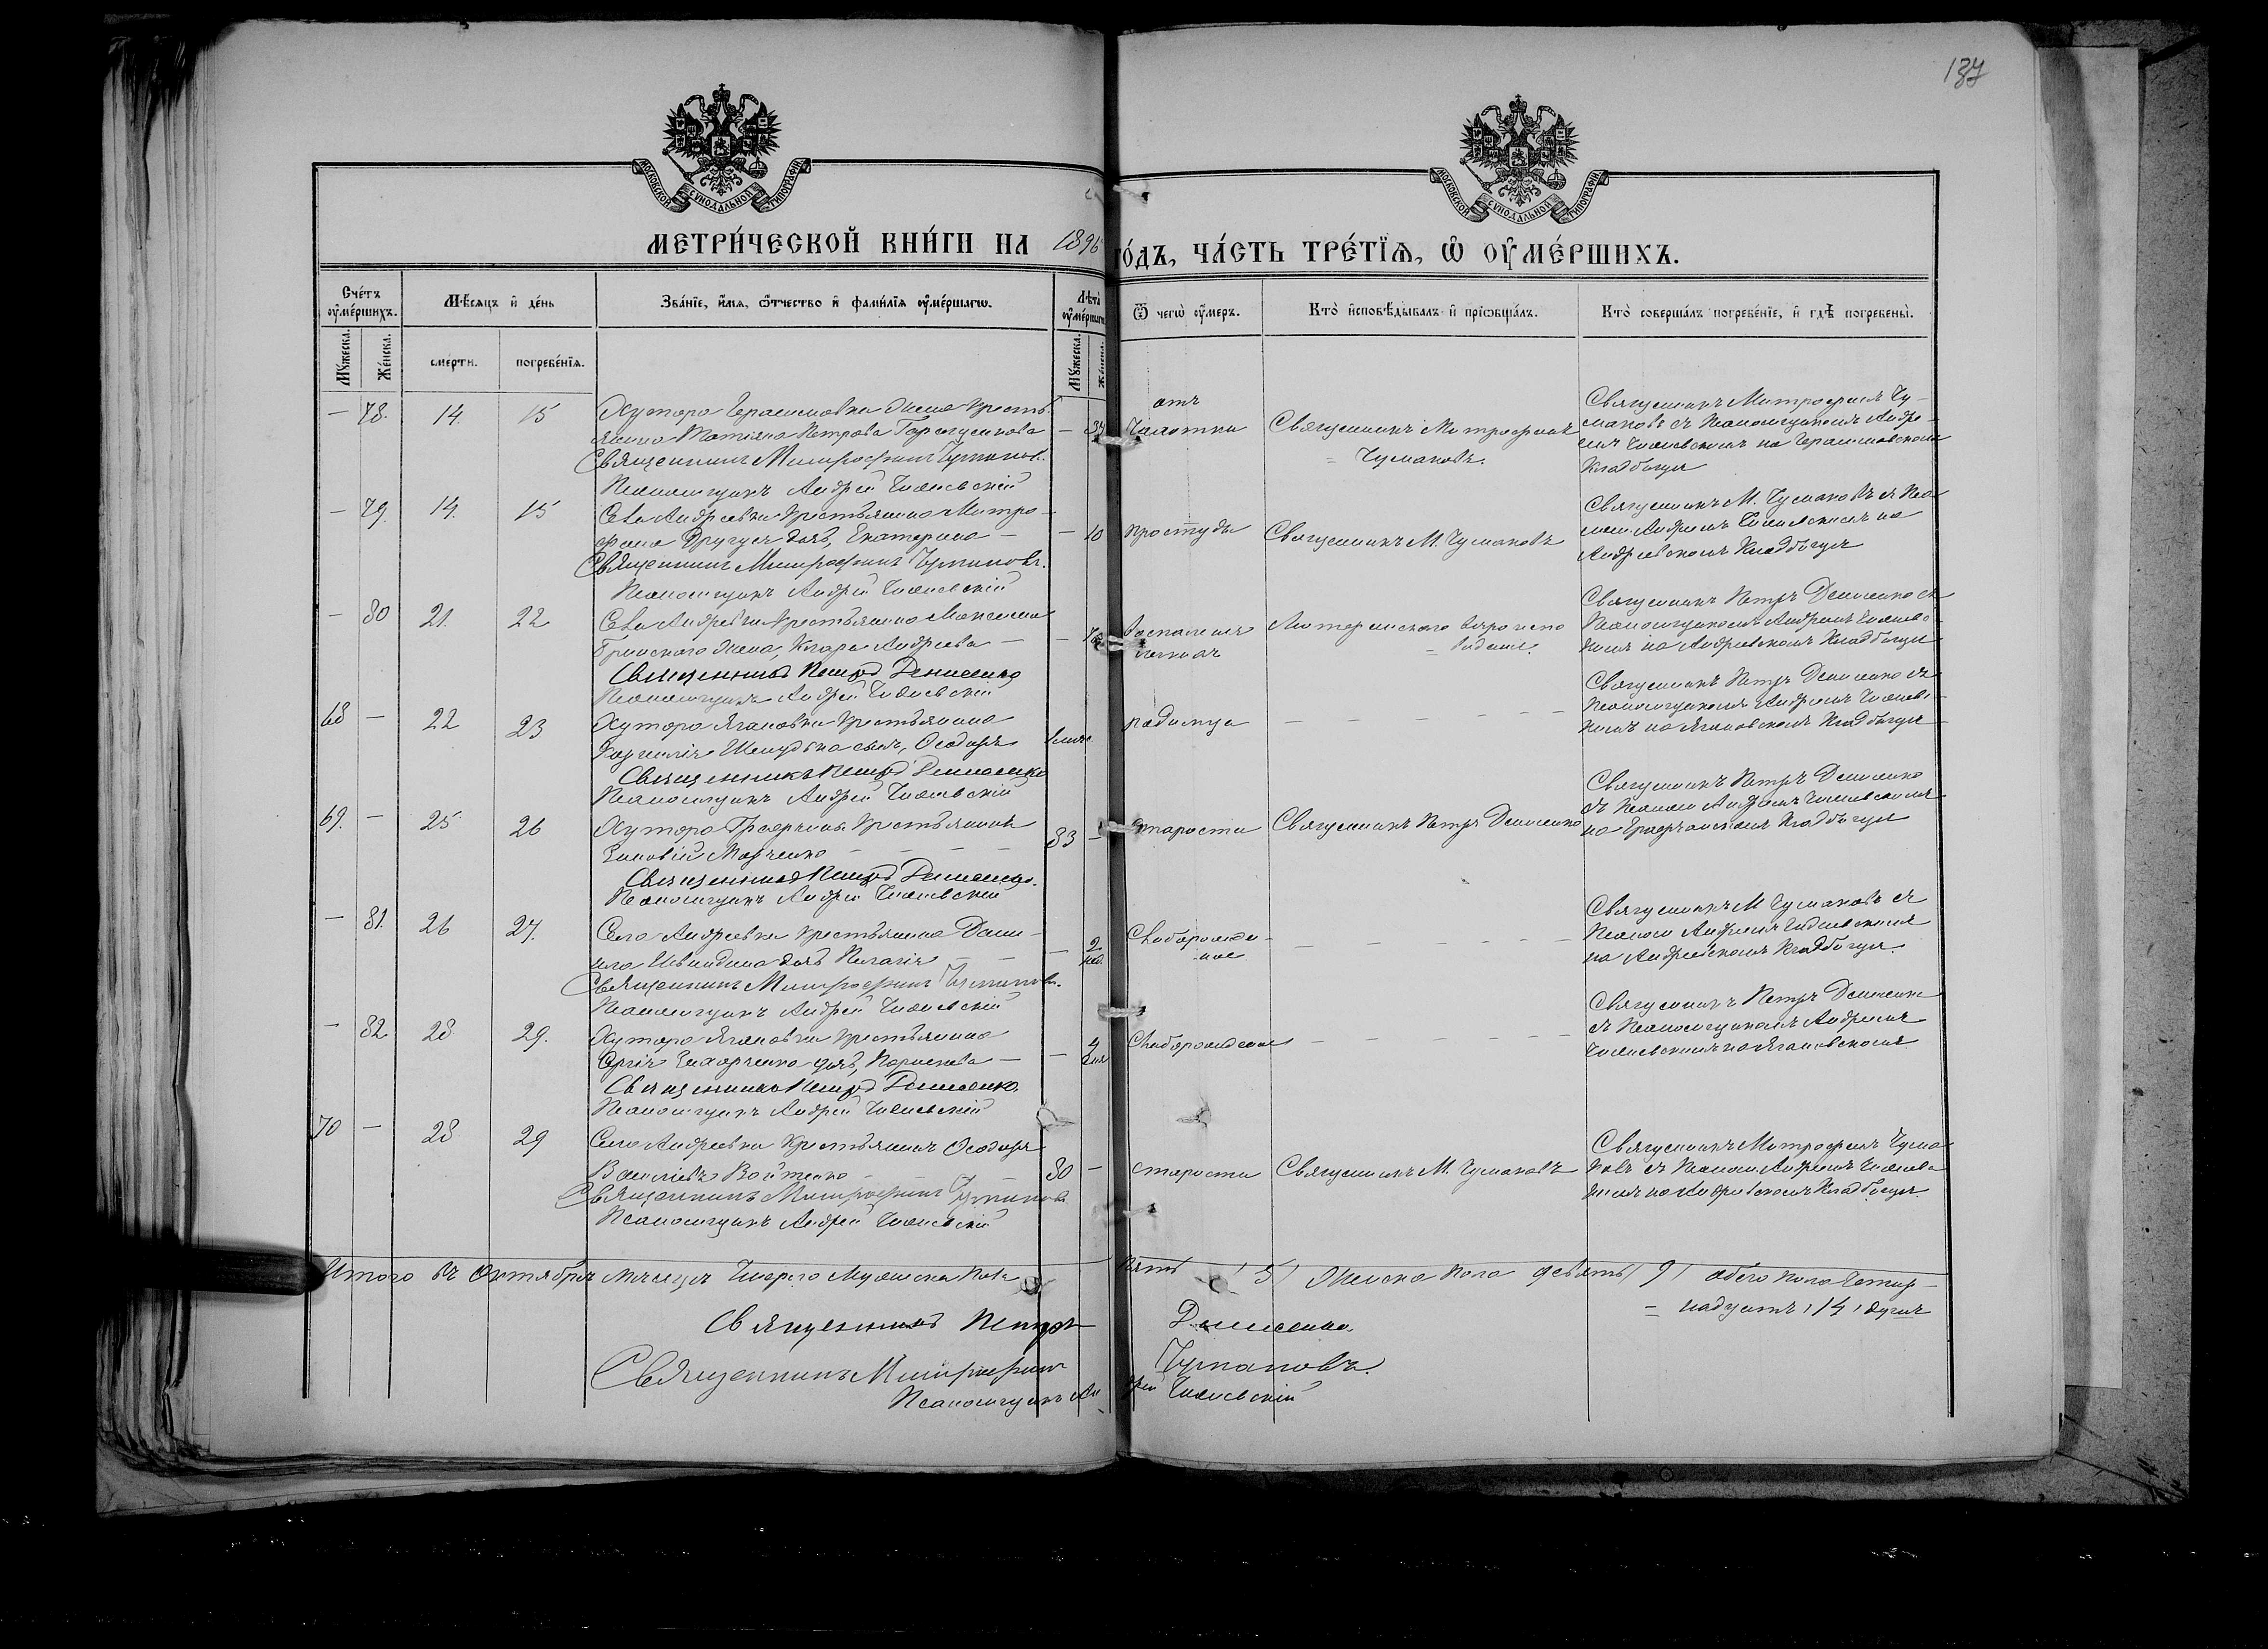 187
МОСКОВСКОЙ СѴНОДАЛЬНОЙ ТИПОГРАФІИ
МОСКОВСКОЙ СѴНОДАЛЬНОЙ ТИПОГРАФІИ
МЕТРИ́ЧЕСКОЙ КНИ́ГИ НА 1896 ГО́ДЪ, ЧА́СТЬ ТРЕ́ТЇѦ, Ѡ҆ ОУ҆МЕ́РШИХЪ.
Сче́тъ оу҆ме́ршихъ.
Мѣсяцъ и҆ де́нь
Зва́нїе, и҆́мя, ѻ҆́тчество и҆ фами́лїя оу҆ме́ршагѡ.
Лѣта̀ оу҆ме́ршагѡ
Ѿ чегѡ̀ оу҆́меръ.
Кто̀ и҆сповѣ́дывалъ и҆ прїѡбща́лъ.
Кто̀ соверша́лъ погребе́нїе, и҆ гдѣ̀ погребены̀.
Му́жеска.
Же́нска.
сме́рти.
погребе́нїя.
Му́жеска.
Же́нска.
— 78. 14. 15 Хутора Герасимовки жена крестья
янина Татіана Петрова
Священникъ Митрофанъ Чумаковъ.
Псаломщикъ Андрей
— 34
отъ
Чахотки
Священникъ Митрофанъ
= Чумаковъ.
Священникъ Митрофанъ Чу-
маковъ съ Псаломщикомъ Андре-
емъ на Герасимовскомъ
Кладбищѣ
— 79. 14. 15 Села Андреевки крестьянина Митро-
фана дочь, Екатерина —
Священникъ Митрофанъ Чумаковъ.
Псаломщикъ Андрей
— 10
простуды
Священникъ М. Чумаковъ
Священникъ М. Чумаковъ съ Пса
лом. Андреемъ на
Андреевскомъ Кладбищѣ
— 80 21. 22 Села Андреевки крестьянина Максима
жена, Клара Андреева —
Священникъ Петръ Денисенко
Псаломщикъ Андрей
воспаленія
легкихъ
Лютеранскаго вѣроиспо
= вѣданія.
Священникъ Петръ Денисенко съ
Псаломщикомъ Андреемъ
на Андреевскомъ Кладбищѣ
68 — 22 23 Хутора Ягановки крестьянина
сынъ, Ѳеодоръ
Священникъ Петръ Денисенко
Псаломщикъ Андрей
родимца
— — — — — —
Священникъ Петръ Денисенко съ
Псаломщикомъ Андреемъ
на Ягановскомъ Кладбищѣ
69. — 25 26 Хутора крестьянинъ
Зиновій Марченко — — — —
Священникъ Петръ Денисенко.
Псаломщикъ Андрей
83 —
старости
Священникъ Петръ Денисенко
Священникъ Петръ Денисенко
съ Псалом. Андреемъ
на Кладбищѣ
— 81. 26 27. Села Андреевки крестьянина Дани-
ила дочь Пелагія — —
Священникъ Митрофанъ Чумаковъ.
Псаломщикъ Андрей
— 2
нед.
Слаборожден-
ное
— — — — — —
Священникъ М Чумаковъ съ
Псалом Андреемъ
на Андреевскомъ Кладбищѣ.
— 82. 28 29. Хутора Ягановки крестьянина
Сергія дочь, —
Священникъ Петръ Денисенко.
Псаломщикъ Андрей
— 4
дня
Слаборожденное
— — — — — —
Священникъ Петръ Денисенко
съ Псаломщикомъ Андреемъ
на Ягановскомъ
70 — 28 29 Села Андреевки крестьянинъ Ѳеодоръ
Васильевъ Войтенко
Священникъ Митрофанъ Чумаковъ
Псаломщикъ Андрей
80 —
старости
Священникъ М. Чумаковъ
Священникъ Митрофанъ Чума
ковъ съ Псалом Андреемъ
на Андреевскомъ Кладбищѣ.
Итого въ Октябрѣ мѣсяцѣ умерло Мужеска пола пять (5) Женска пола девять (9) обоего пола четыр-
= надцать (14) душъ
Священникъ Петръ Денисенко
Священникъ Митрофанъ Чумаковъ.
Псаломщикъ Андрей